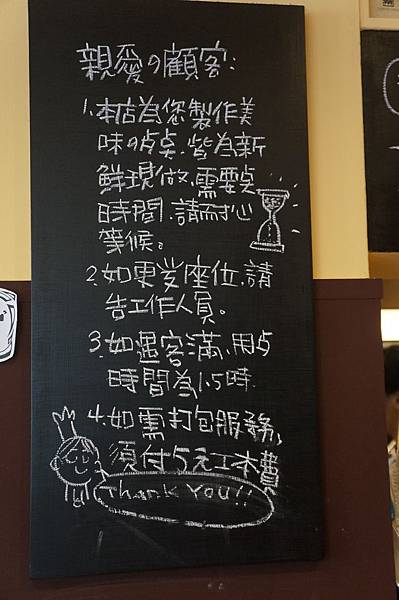 親愛の顧客:
1.本店為您製作美
味の点桌.皆為新
鮮現做,需要点
時間,請耐心
等候。
2.如更岁座位,請
告工作人員。
3.如遇客滿,用点
時間為1.5時.
4.如需打包服務,
須付5元工本費
Thank YOU!!